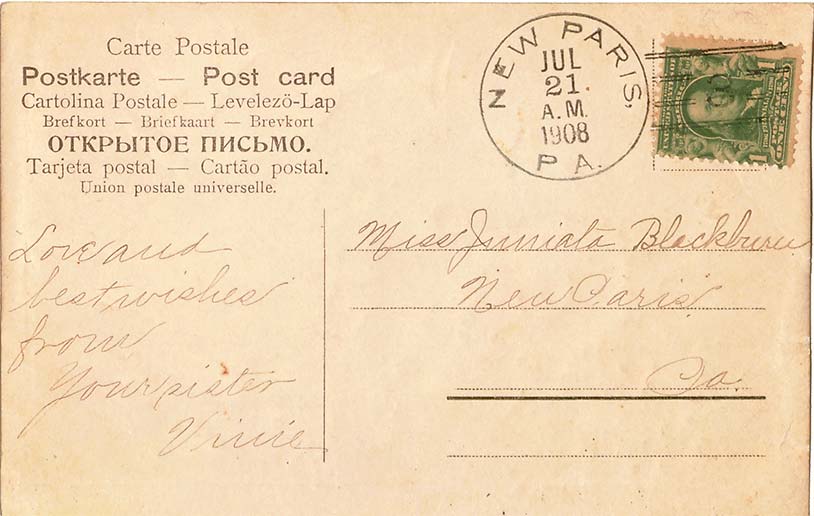 Carte Postale
Postkarte — Post card
Cartolina Postale — Levelezö-Lap
Brefkort — Briefkaart — Brevkort
ОТКРЫТОЕ ПИСЬМО.
Tarjeta postal — Cartão postal.
Union postale universelle.
NEW PARIS,
JUL
21.
A.M.
1908
PA.
Love and
best wishes
from
Your sister
Vinie
Miss Juniata Blackburn
New Paris
Pa.